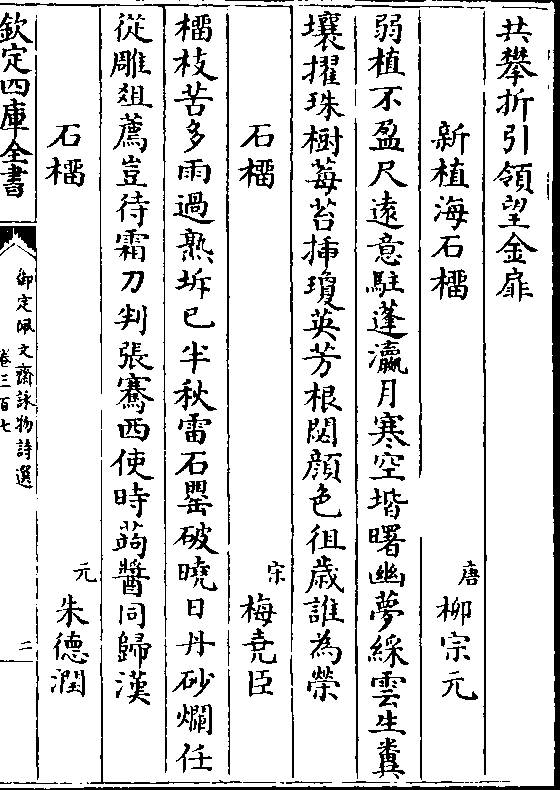 共攀折引領望金扉
新植海石橊 唐 柳宗元
弱植不盈尺遠意駐蓬瀛月寒空堦曙幽夢綵雲生糞
壤擢珠樹莓苔揷瓊英芳根閟顔色徂歲誰為榮
石橊 宋 梅堯臣
橊枝苦多雨過熟坼已半秋雷石罌破曉日丹砂爛任
從雕俎薦豈待霜刀判張騫西使時蒟醬同歸漢
石橊 元 朱德潤
欽定四庫全書
御定佩文齋詠物詩選
卷三百七
二